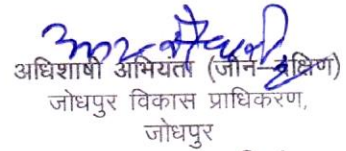 अधिशाषी अभियंता (जोन-दक्षिण)
जोधपुर विकास प्राधिकरण,
जोधपुर